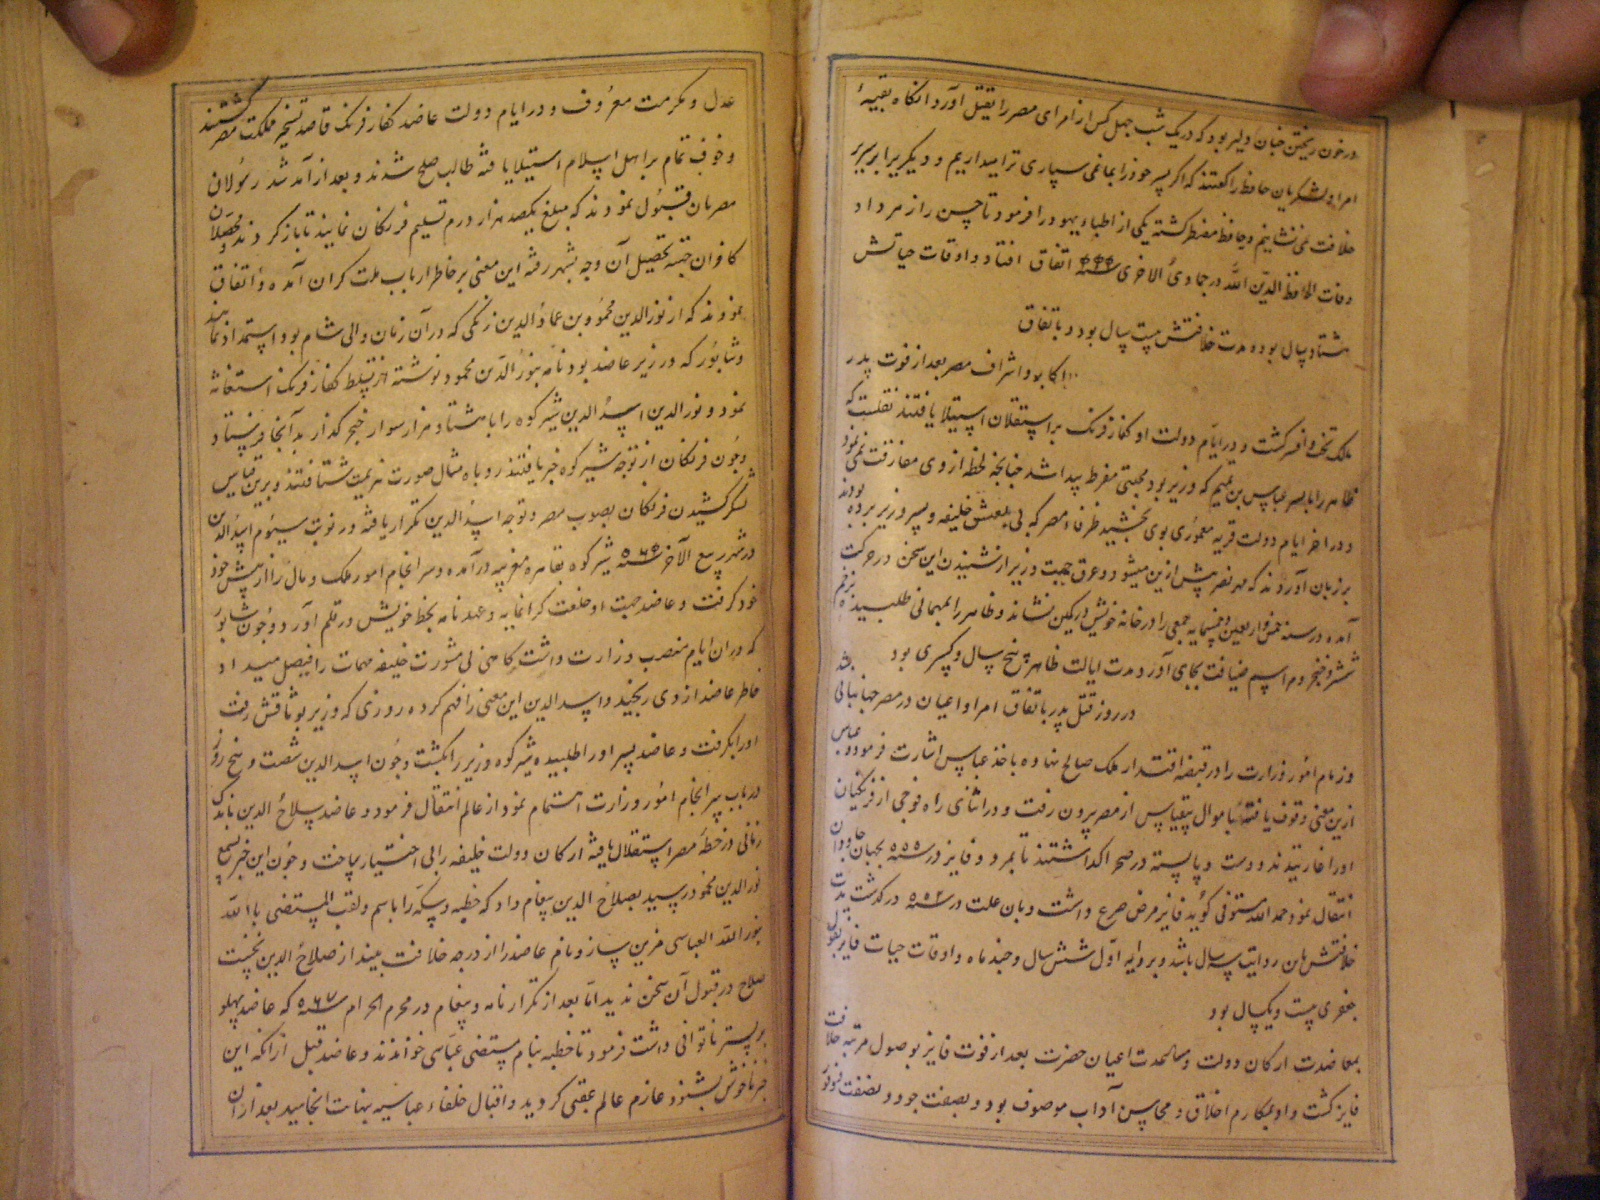 در خون ریختن چنان دلیر بود که در یک شب چهل کس از امرای مصر را بقتل آورد آنکاه بقیهٔ
امرا و لشکریان حافظ را کفتند که اکر پسر خود را بماغی سپاری ترا میداریم و دیکریرا بر سریر
خلافت می نشانیم و حافظ مضطر کشته یکی از اطباء یهود را فرمود تا حسن را زهر داد
وفات الحافظ لدین الله در جمادی الاخری سنه ۵۴۴ اتفاق افتاد و اوقات حیاتش
هشتاد سال بود و مدت خلافتش بیست سال بود و باتفاق
اکابر و اشراف مصر بعد از فوت پدر
ملک تخت و افسر کشت و در ایام دولت او کفار فرنک بر استقلان استیلا یافتند نقلست که
ظاهر را با پسر عباس بن تمیم که وزیر بود محبتی مفرط پیدا شد چنانچه لحظه از وی مفارقت نمی نمود
و در اخر ایام دولت قریه معموری بوی بخشید ظرفاء مصر که بی بلعش خلیفه و پسر وزیر برده بودند
بر زبان آوردند که مهر نصر بیش ازین میشود و عرق حمیت وزیر از شنیدن این سخن در حرکت
آمده در سنه تسع و اربعین و خمسمایه جمعی را در خانه خویش در کمین نشاند و ظاهر را بمهمانی طلبیده بزخم
شمشیر و خنجر مراسم ضیافت بجای آورد مدت ایالت ظاهر پنج سال و کسری بود
در روز قتل پدر باتفاق امرا و اعیان در مصر جهانبانی شد
و زمام امور وزارت را در قبضه اقتدار ملک صالح نهاده باخذ عباس اشارت فرمود و عباس
ازین معنی وقوف یافته با موال بیقیاس از مصر بیرون رفت و در اثنای راه فوجی از فرنکیان
او را غارتیدند و دست و پا بسته در صحرا کذاشتند تا بمرد و فایز در سنه ۵۵۵ بجهان جاودان
انتقال نمود حمد الله مستوفی کوید فایز مرض صرع داشت و بان علت در سنه ۵۵۲ درکذشت مدت
خلافتش باین روایت سه سال باشد و بروایه اول شش سال و چند ماه و اوقات حیات فایز بقول
جعفری بیست و یکسال بود
بمعاضدت ارکان دولت و مصلحت اعیان حضرت بعد از فوت فایز بوصول مرتبه خلافت
فایز کشت و او بمکارم اخلاق و محاسن آداب موصوف بود و بصفت جود و نصفت و وفور
عدل و مکرمت معروف و در ایام دولت عاضد کفار فرنک قاصد تسخیر مملکت مصر کشتند
و خوف تمام بر اهل اسلام استیلا یافته طالب صلح شدند و بعد از آمد شد رسولان
مصریان قبول نمودند که مبلغ یکصد هزار درم تسلیم فرنکان نمایند تا باز کردند و محصلان
کافران جهته تحصیل آن وجه بشهر رفته این معنی بر خاطر ارباب ملت کران آمده و اتفاق
نمودند که از نور الدین محمود بن عماد الدین زنکی که در آن زمان والی شام بود استمداد نمایند
و شابور که وزیر عاضد بود نامه بنور الدین محمود نوشته از تسلط کفار فرنک استغاثه
نمود و نور الدین اسد الدین شیرکوه را با هشتاد هزار سوار خنجر کذار بدآنجا فرستاد
و چون فرنکان از توجه شیرکوه خبر یافتند روباه مثال صورت هزیمت شتافتند و برین قیاس
لشکر کشیدن فرنکان بصوب مصر و توجه اسد الدین تکرار یافته در نوبت سیوم اسد الدین
در شهر ربیع الآخر سنه ۵۶۴ شیرکوه بقاهره مغربیه درآمده و سر انجام امور ملک و مال را از پیش خود
خود کرفت و عاضد جهت او خلعت کرانمایه و عهد نامه بخط خویش در قلم آورد و چون شابور
که در آن ایام منصب وزارت داشت کاهی بی مشورت خلیفه مهمات را فیصل میداد
خاطر عاضد از وی رنجید و اسد الدین این معنی را فهم کرده روزی که وزیر بوثاقش رفت
او را بکرفت و عاضد سر او را طلبیده شیرکوه وزیر را بکشت و چون اسد الدین شصت و پنج روز
در باب سر انجام امور وزارت اهتمام نمود از عالم انتقال فرمود و عاضد صلاح الدین باندک
زمانی در خطه مصر استقلال یافته ارکان دولت خلیفه را بی اختیار ساخت و چون این خبر بسمع
نور الدین محمود رسید بصلاح الدین پیغام داد که خطبه و سکه را باسم و لقب المستضی بالله
بنور الله العباسی مزین سازد و نام عاضد را از درجه خلافت بیندازد صلاح الدین نخست
صلاح در قبول آن سخن ندید اما بعد از تکرار نامه و پیغام در محرم الحرام سنه ۵۶۷ که عاضد پهلو
بر بستر ناتوانی داشت فرمود تا خطبه بنام مستضی عباسی خواندند و عاضد قبل از آنکه این
خبر ناخوش بشنود عازم عالم عقبی کردید و اقبال خلفاء عباسیه بنهایت انجامید بعد از آن